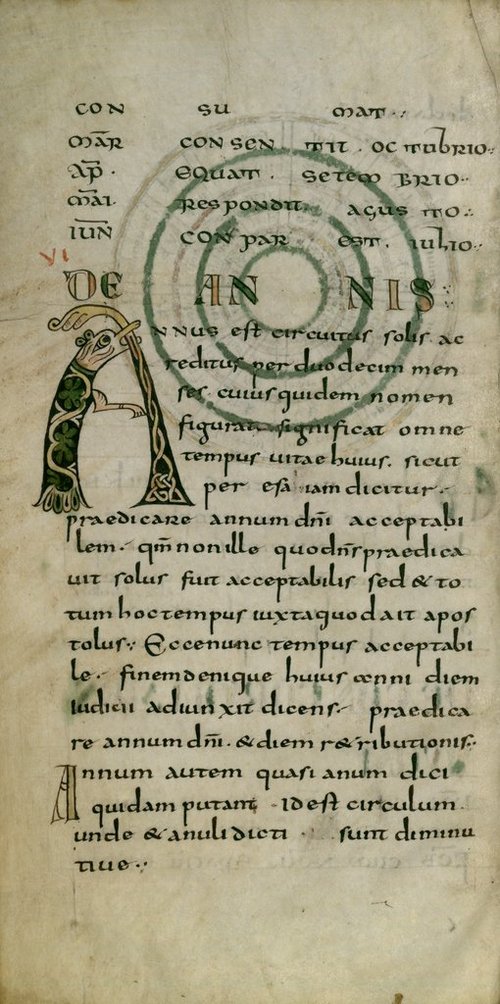 CON SU MAT ·:
MAR̄ CONSEN TIT . OCTUBRIO:
AP̄ . EQUAT . SETEM BRIO.
MAI. RESPONDIT. AGUS TO.
IUN̄ CONPAR EST. IULIO.
VI
DE ANNIS
ANNUS est circuitus solis. ac
reditus per duodecim men
ses. cuius quidem nomen
figurat. significat omne
tempus uitae huius. sicut
per esa iam dicitur.
praedicare annum dn̄i acceptabi
lem. qm̄ non ille quo dn̄s praedica
uit solus fuit acceptabilis sed & to
tum hoc tempus iuxta quod ait apos
tolus: Ecce nunc tempus acceptabi
le. finem denique huius anni diem
iudicii adiunxit dicens. praedica
re annum dn̄i. & diem r&ributionis:
Annum autem quasi anum dici
quidam putant id est circulum.
unde & anuli dicti sunt diminu
tiue ·: